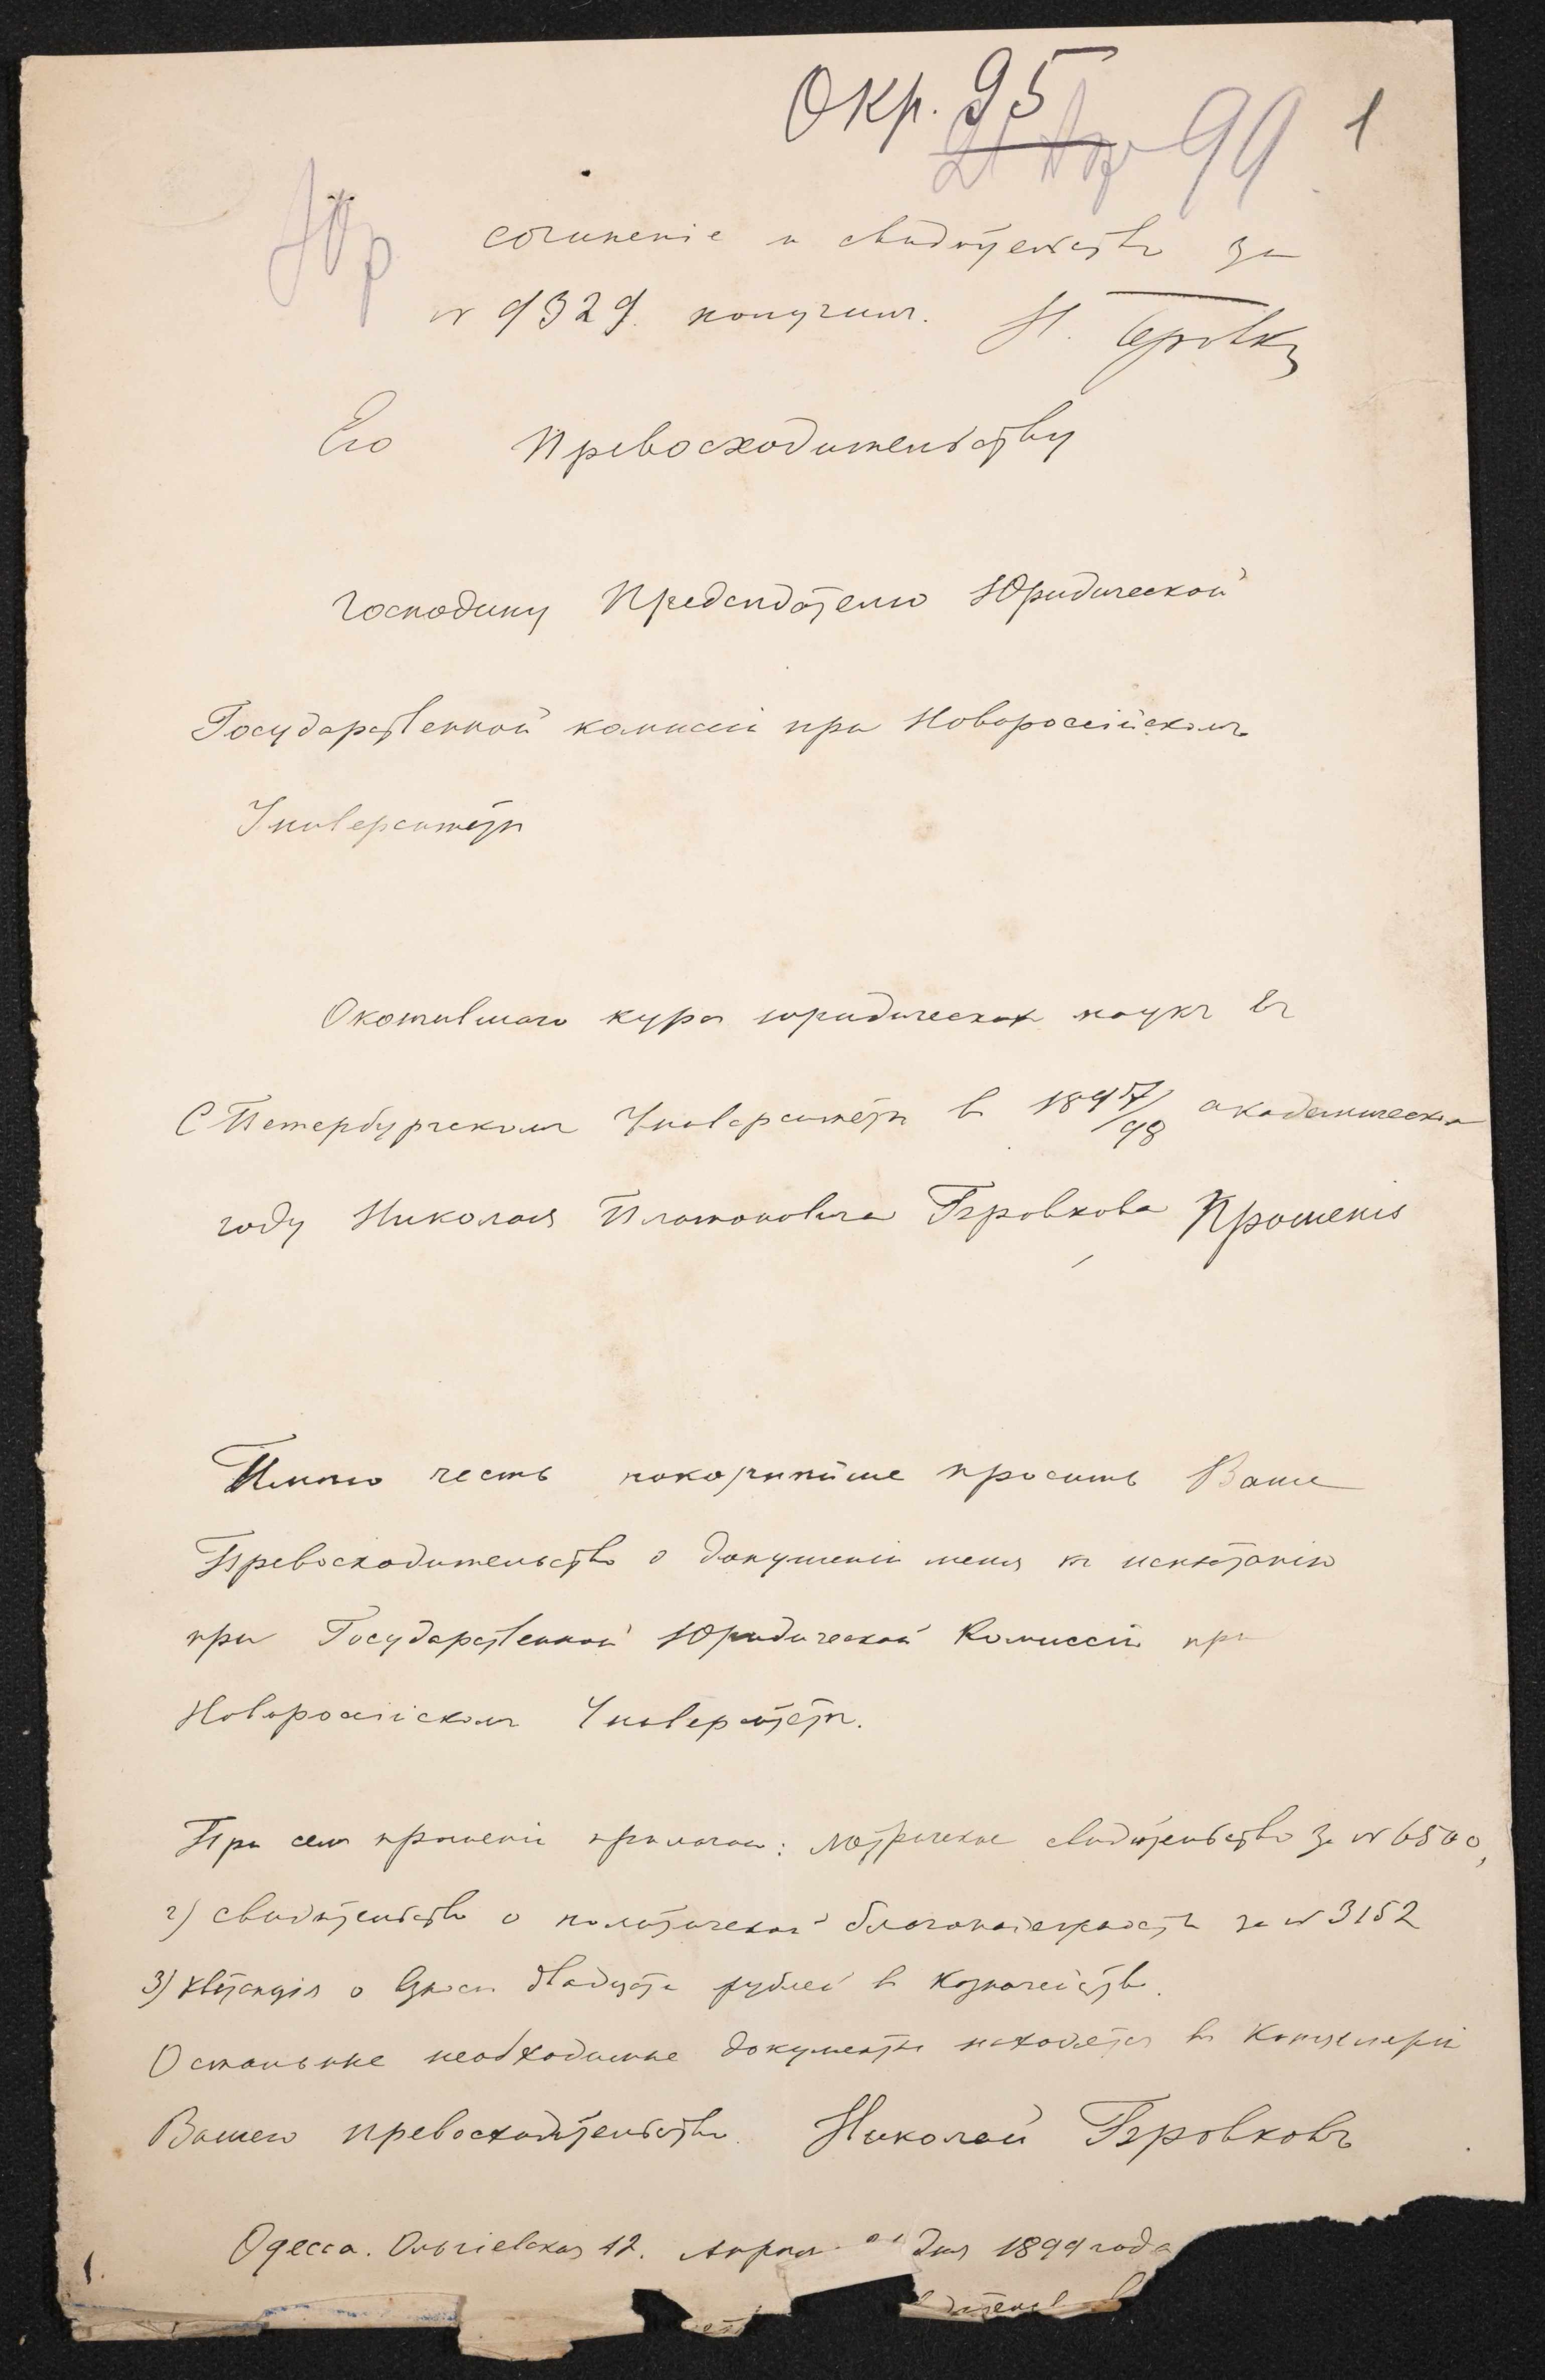 Окр. 95
21 Апр 99
1
Юр
сочиненіе и свидѣтельство за
№ 9329 получилъ. Н.
Его Превосходительству
Господину Предсѣдателю Юридической
Государственной комиссіи при Новороссійскомъ
Университетѣ
Окончившаго курсъ юридическихъ наукъ въ
С Петербургскомъ Университетѣ въ 1897/98 академическом
году Николая Платоновича Боровкова Прошеніе
Имѣю честь покорнѣйше просить Ваше
Превосходительство о допущеніи меня къ испытанію
при Государственной Юридической Комиссіи при
Новороссійскомъ Университетѣ.
При семъ прошеніи прилагаю: метрическое свидѣтельство за № 6500,
2) свидѣтельство о политической благонадежности за № 3152
3) квитанція о взносѣ двадцати рублей въ Казначейство.
Остальные необходимые документы находятся въ Канцеляріи
Вашего превосходительства. Николай Боровковъ
Одесса. Ольгіевская 12. Апрѣля дня 1899 года
1.